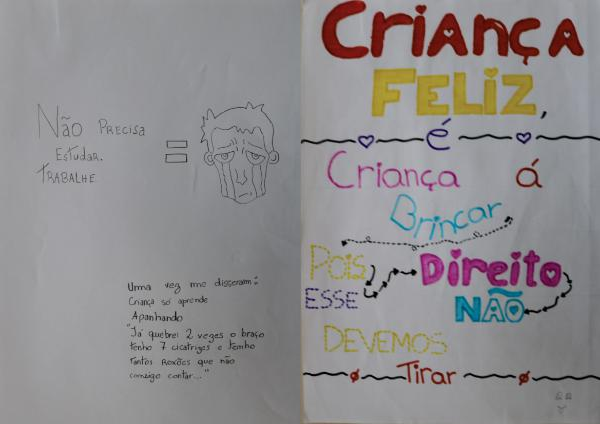 Não Precisa
Estudar.
Trabalhe
=
Uma vez me disseram:
Criança só aprende
Apanhando
"Já quebrei 2 vezes o braço
tenho 7 cicatrizes e tenho
tantos Roxões que não
consigo contar..."
Criança
Feliz,
é
Criança á
Brincar
Pois Direito
ESSE NÃO
DEVEMOS
Tirar